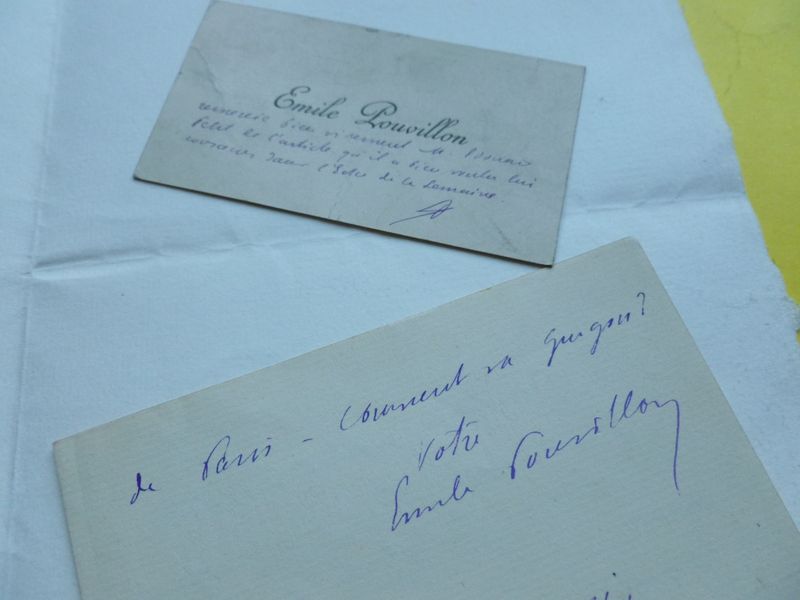 Emile Pouvillon
remercie bien vivement M.
Petit de l'article qu'il a bien voulu lui
consacrer dans l'Echo de la Semaine.
de Paris - Comment va Gusgou?
Votre
Emile Pouvillon